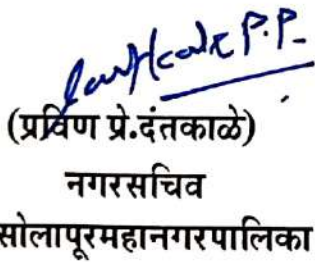 P.P.
(प्रविण प्रे.दंतकाळे)
नगरसचिव
सोलापूरमहानगरपालिका